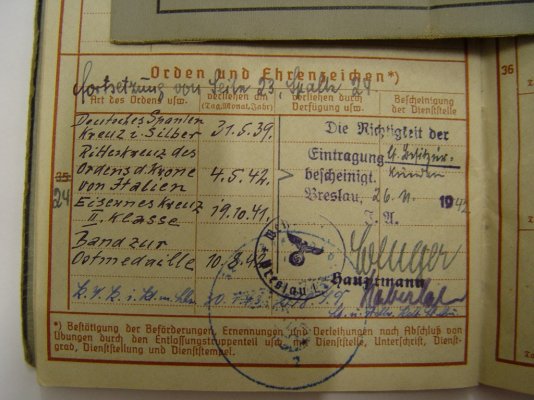 Orden und Ehrenzeichen*)
Fortsetzung von Seite 23, Spalte 24
Art des Ordens usw.
verliehen am
(Tag, Monat, Jahr)
verliehen durch
Verfügung usw.
Bescheinigung
der Dienststelle
36
Deutsches Spanien
Kreuz i. Silber 31.5.39.
Ritterkreuz des
Ordens d. Krone
von Italien 4.5.42.
25
24
Eisernes Kreuz
II. Klasse 19.10.41.
Band zur
Ostmedaille 10.8.42
Die Richtigkeit der
Eintragung 4 Besitzur-
bescheinigt. kunden
Breslau, 26. 1942
I. A.
Hauptmann
Breslau
*) Bestätigung der Beförderungen, Ernennungen und Verleihungen nach Abschluß von
Übungen durch den Entlassungstruppenteil usw. mit Dienststelle, Unterschrift, Dienst-
grad, Dienststellung und Dienststempel.